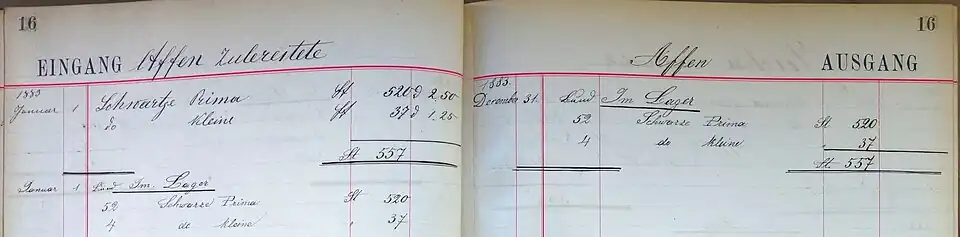 16
EINGANG Affen Zubereitete
1883
Januar 1 Schwartze Prima St 520 d 2.50
do Kleine St 37 d 1.25
St 557
Januar 1 Bund Im Lager
52 Schwarze Prima St 520
4 do Kleine " 37
16
Affen AUSGANG
1883.
December 31. Bund Im Lager
52 Schwarze Prima St 520
4 do Kleine " 37
St 557